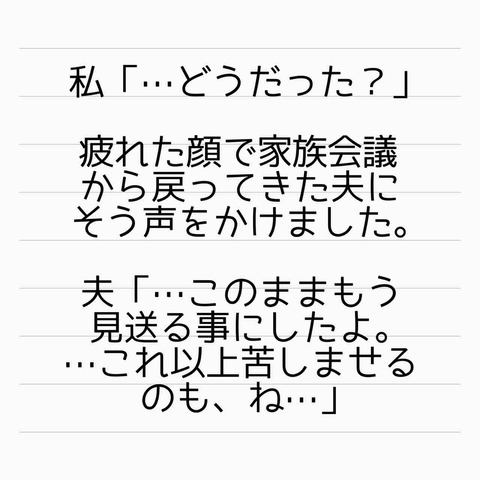 私「…どうだった？」
疲れた顔で家族会議
から戻ってきた夫に
そう声をかけました。
夫「…このままもう
見送る事にしたよ。
…これ以上苦しませる
のも、ね…」